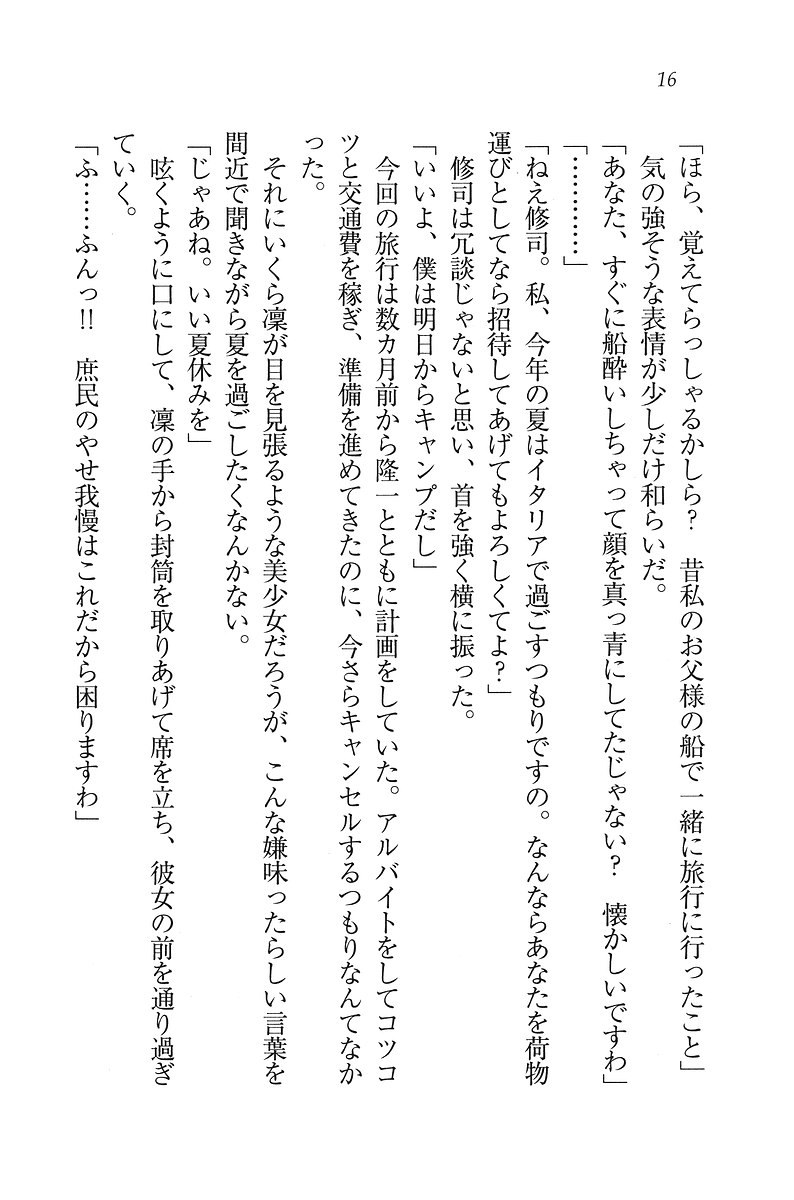 16
「ほら、覚えてらっしゃるかしら？　昔私のお父様の船で一緒に旅行に行ったこと」
　気の強そうな表情が少しだけ和らいだ。
「あなた、すぐに船酔いしちゃって顔を真っ青にしてたじゃない？　懐かしいですわ」
「…………」
「ねえ修司。私、今年の夏はイタリアで過ごすつもりですの。なんならあなたを荷物
運びとしてなら招待してあげてもよろしくてよ？」
　修司は冗談じゃないと思い、首を強く横に振った。
「いいよ、僕は明日からキャンプだし」
　今回の旅行は数カ月前から隆一とともに計画をしていた。アルバイトをしてコツコ
ツと交通費を稼ぎ、準備を進めてきたのに、今さらキャンセルするつもりなんてなか
った。
　それにいくら凜が目を見張るような美少女だろうが、こんな嫌味ったらしい言葉を
間近で聞きながら夏を過ごしたくなんかない。
「じゃあね。いい夏休みを」
　呟くように口にして、凜の手から封筒を取りあげて席を立ち、彼女の前を通り過ぎ
ていく。
「ふ……ふんっ!!　庶民のやせ我慢はこれだから困りますわ」